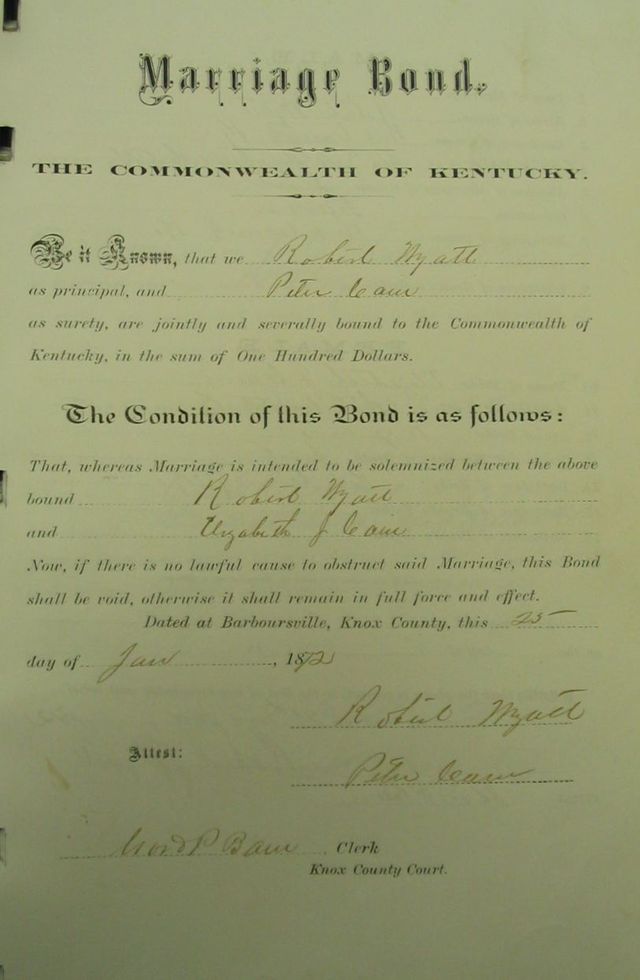 Marriage Bond.
THE COMMONWEALTH OF KENTUCKY.
Be it Known, that we Robert Wyatt
as principal, and Peter Cain
as surety, are jointly and severally bound to the Commonwealth of
Kentucky, in the sum of One Hundred Dollars.
The Condition of this Bond is as follows:
That, whereas Marriage is intended to be solemnized between the above
bound Robert Wyatt
and Elizabeth J Cain
Now, if there is no lawful cause to obstruct said Marriage, this Bond
shall be void, otherwise it shall remain in full force and effect.
Dated at Barboursville, Knox County, this 25
day of Jan , 1872
Robert Wyatt
Attest:
Peter Cain
P Clerk
Knox County Court.